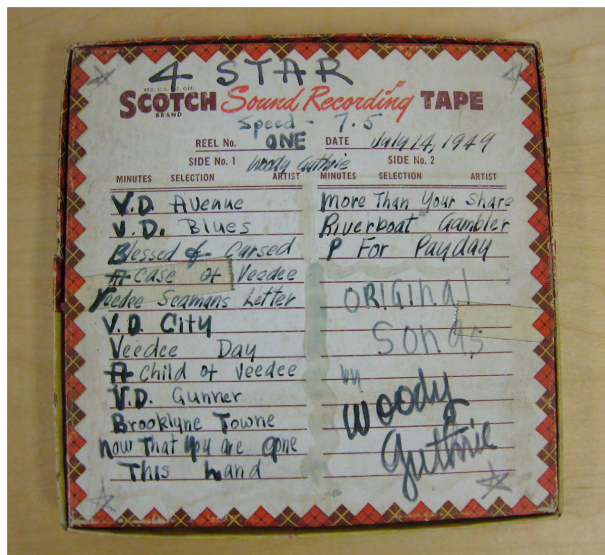 4 STAR
REG. U.S. PAT. OFF.
SCOTCH Sound Recording TAPE
BRAND
Speed - 7.5
REEL No. ONE DATE July 14, 1949
SIDE No. 1 Woody Guthrie SIDE No. 2
MINUTES SELECTION ARTIST MINUTES SELECTION ARTIST
V.D. Avenue
V.D. Blues
Blessed & Cursed
A Case of Veedee
Veedee Seamans Letter
V.D. City
Veedee Day
A Child of Veedee
V.D. Gunner
Brooklyne Towne
now That you are gone
This hand
more Than Your Share
Riverboat Gambler
P For Payday
ORIGINAl
SONGS
by
woody
Guthrie